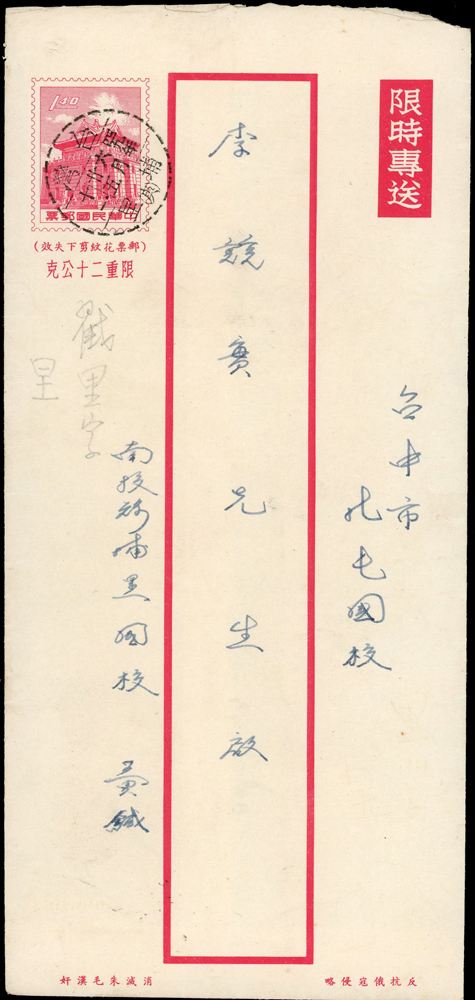 限時專送
台中市
北屯國校
李競賓先生啟
南投縣埔里國校 黃緘
1.40
票郵國民華中
(郵票花紋剪下失效)
限重二十公克
戳里字
呈
反抗俄寇侵略
消滅朱毛漢奸